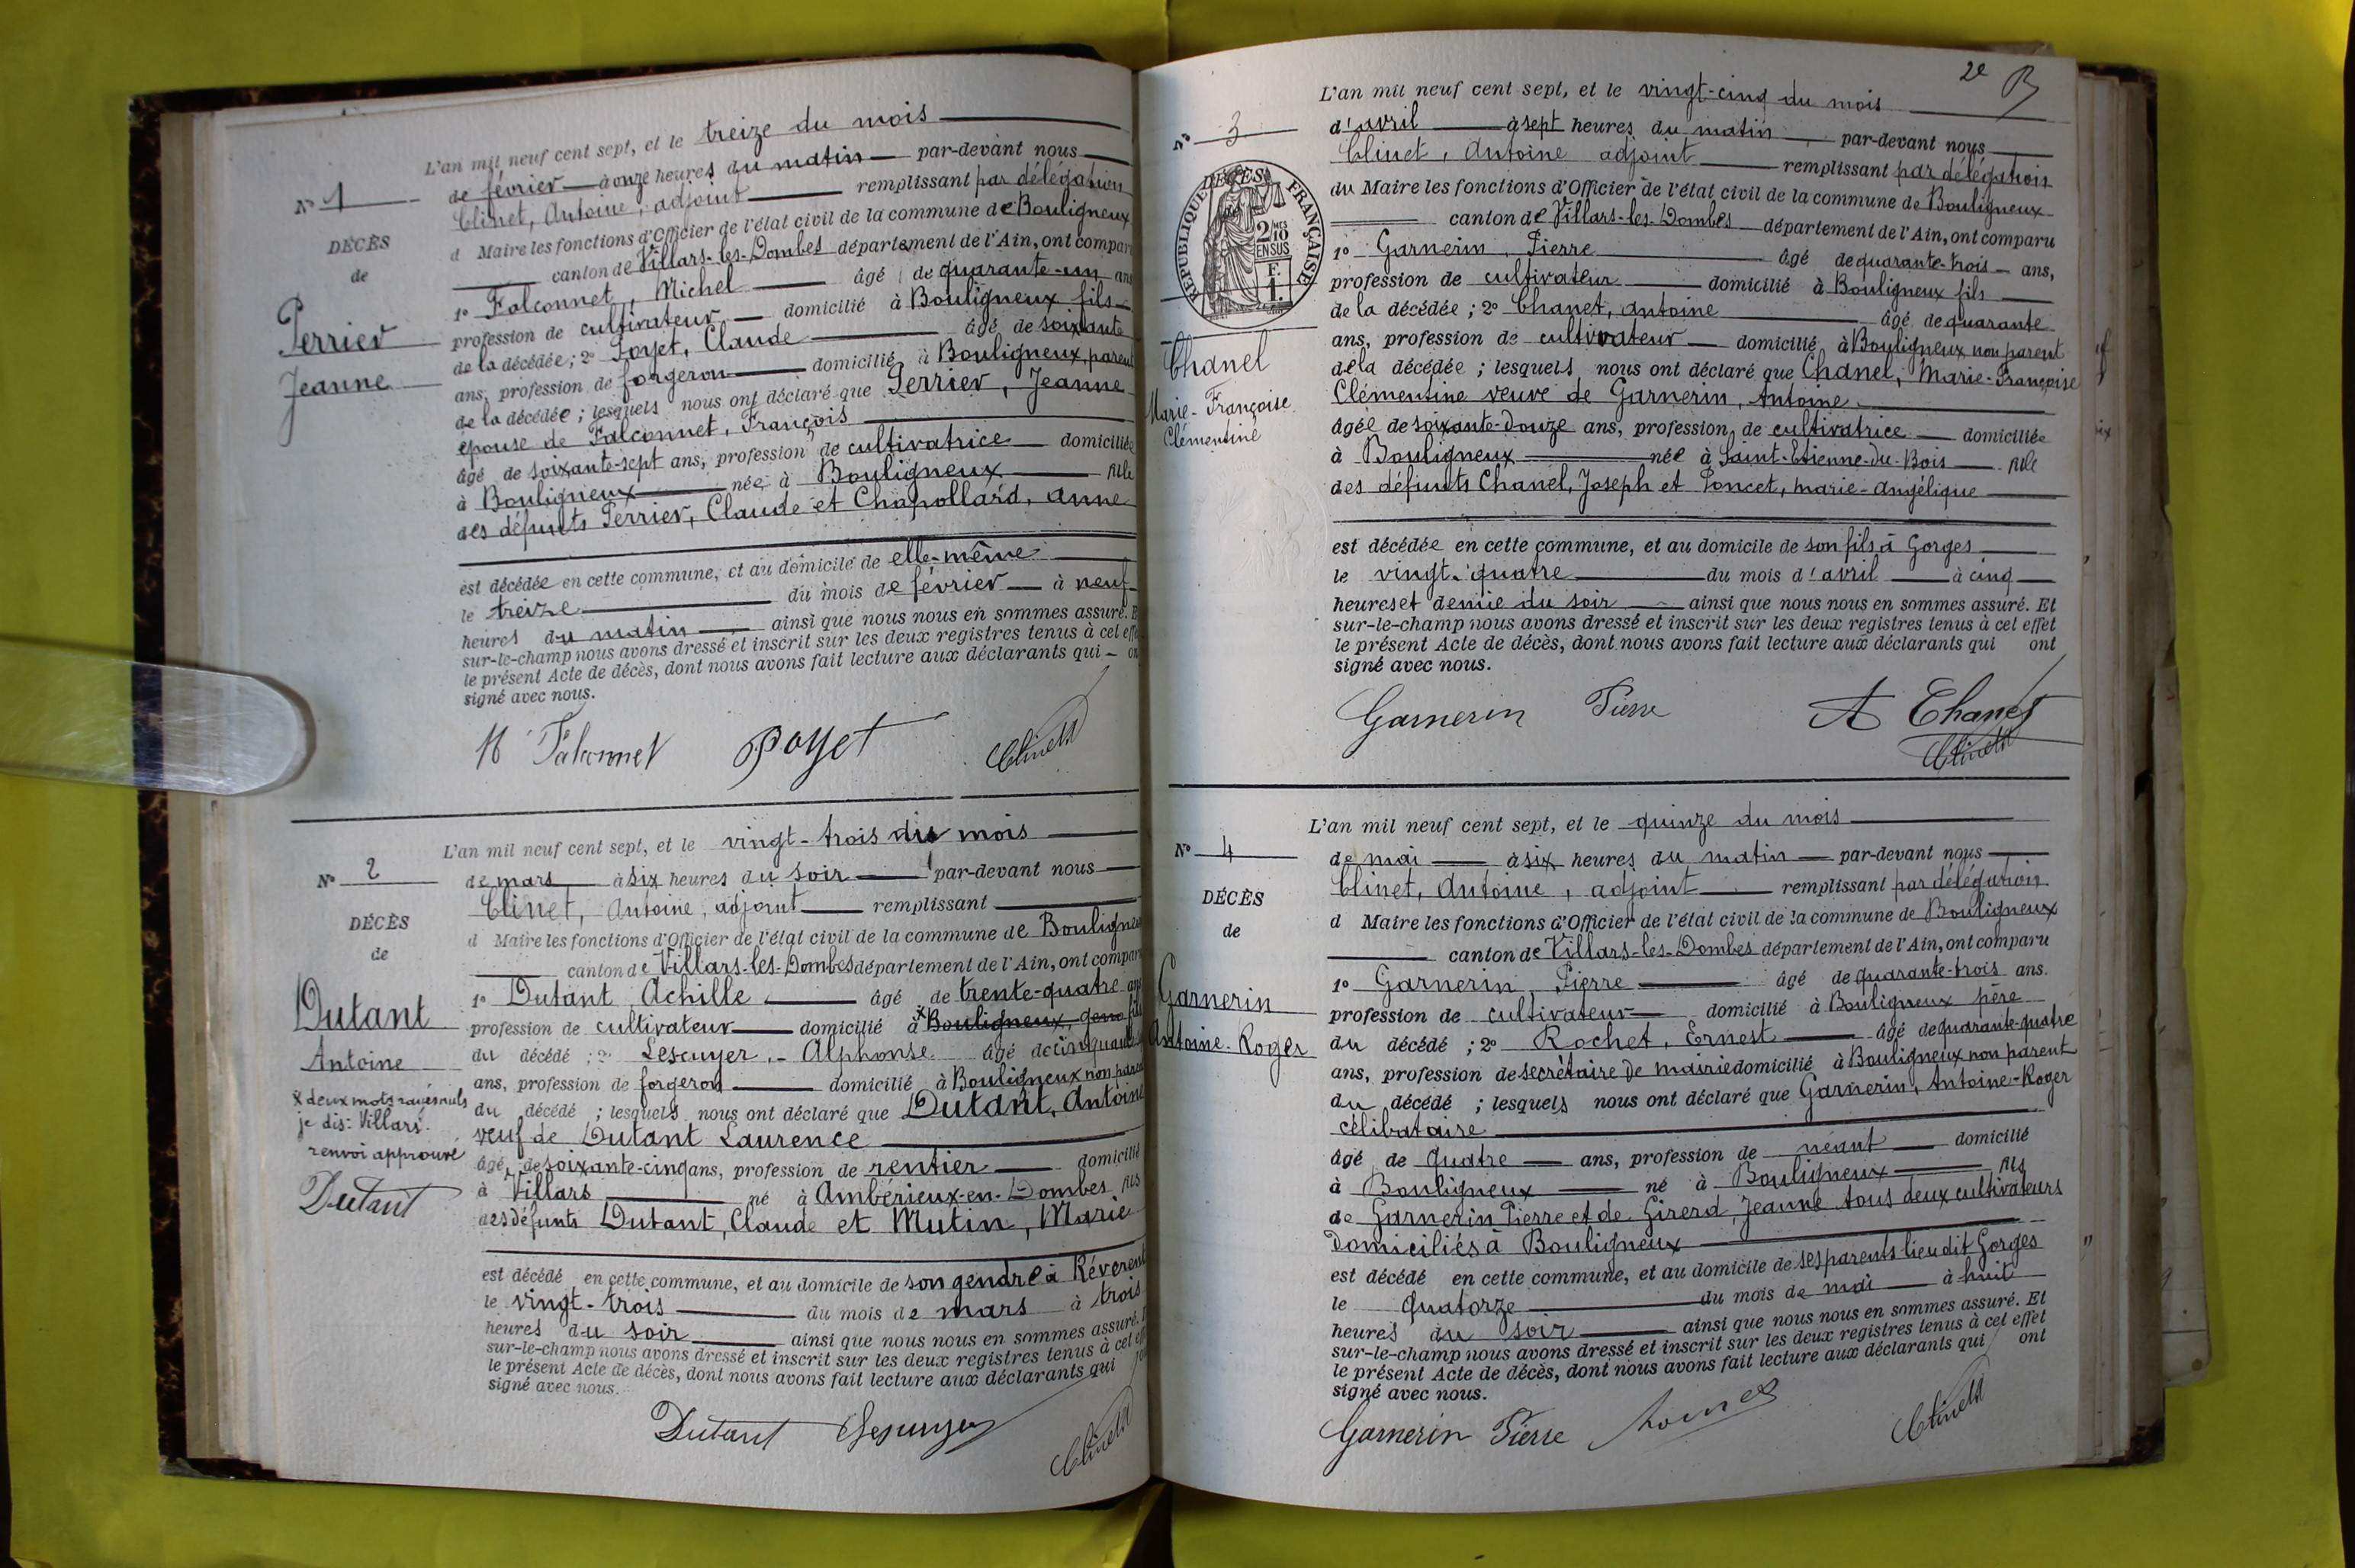 L'an mil neuf cent sept, et le treize du mois
Nº 1
de février à onze heures du matin par-devant nous
Clinet, Antoine, adjoint remplissant par délégation
d Maire les fonctions d'Officier de l'état civil de la commune de Bouligneux
DÉCÈS
de
Perrier
Jeanne
canton de Villars-les-Dombes département de l'Ain, ont compar
1º Falconnet, Michel âgé de quarante-un ans
profession de cultivateur domicilié à Bouligneux fils
de la décédée; 2º Poyet, Claude âgé de soixante
ans, profession de forgeron domicilié à Bouligneux, parent
de la décédée; lesquels nous ont déclaré que Perrier, Jeanne
épouse de Falconnet, François
âgé de soixante-sept ans, profession de cultivatrice domiciliée
à Bouligneux née à Bouligneux fille
des défunts Perrier, Claude et Chapollard, Anne
est décédée en cette commune, et au domicile de elle-même
le treize du mois de février à neuf
heures du matin ainsi que nous nous en sommes assuré. E
sur-le-champ nous avons dressé et inscrit sur les deux registres tenus à cet effe
le présent Acte de décès, dont nous avons fait lecture aux déclarants qui on
signé avec nous.
M Falconnet Poyet Clinet
L'an mil neuf cent sept, et le vingt-trois du mois
Nº 2
de mars à six heures du soir par-devant nous
Clinet, Antoine, adjoint remplissant
d Maire les fonctions d'Officier de l'état civil de la commune de Bouligneu
DÉCÈS
de
Dutant
Antoine
x deux mots rayés nuls
je dis: Villars.
renvoi approuvé
Dutant
canton de Villars-les-Dombes département de l'Ain, ont compar
1º Dutant Achille âgé de trente-quatre an
profession de cultivateur domicilié à x Bouligneux, fils
du décédé; 2º Lescuyer, Alphonse âgé de cinquante
ans, profession de forgeron domicilié à Bouligneux non paren
du décédé; lesquels nous ont déclaré que Dutant, Antoine
veuf de Dutant Laurence
âgé de soixante-cinq ans, profession de rentier domicilié
à Villars né à Ambérieux-en-Dombes fils
des défunts Dutant, Claude et Mutin, Marie
est décédé en cette commune, et au domicile de son gendre à Réverent
le vingt-trois du mois de mars à trois
heures du soir ainsi que nous nous en sommes assuré.
sur-le-champ nous avons dressé et inscrit sur les deux registres tenus à cet eff
le présent Acte de décès, dont nous avons fait lecture aux déclarants qui
signé avec nous.
Dutant Lescuyer Clinet
2e
L'an mil neuf cent sept, et le vingt-cinq du mois
Nº 3
d'avril à sept heures du matin par-devant nous
Clinet, Antoine adjoint remplissant par délégation
du Maire les fonctions d'Officier de l'état civil de la commune de Bouligneux
DÉCÈS
de
RÉPUBLIQUE FRANÇAISE
2 MES
10
EN SUS
F.
1.
Chanel
Marie-Françoise
Clémentine
canton de Villars-les-Dombes département de l'Ain, ont comparu
1º Garnerin, Pierre âgé de quarante-trois ans,
profession de cultivateur domicilié à Bouligneux fils
de la décédée; 2º Chanet, Antoine âgé de quarante
ans, profession de cultivateur domicilié à Bouligneux non parent
de la décédée; lesquels nous ont déclaré que Chanel, Marie-Françoise
Clémentine veuve de Garnerin, Antoine
âgée de soixante-douze ans, profession de cultivatrice domiciliée
à Bouligneux née à Saint-Etienne-du-Bois fille
des défunts Chanel, Joseph et Poncet, Marie-Angélique
est décédée en cette commune, et au domicile de son fils à Gorges
le vingt-quatre du mois d'avril à cinq
heures et demie du soir ainsi que nous nous en sommes assuré. Et
sur-le-champ nous avons dressé et inscrit sur les deux registres tenus à cet effet
le présent Acte de décès, dont nous avons fait lecture aux déclarants qui ont
signé avec nous.
Garnerin Pierre A Chanet
Clinet
L'an mil neuf cent sept, et le quinze du mois
Nº 4
de mai à six heures du matin par-devant nous
Clinet, Antoine, adjoint remplissant par délégation
d Maire les fonctions d'Officier de l'état civil de la commune de Bouligneux
DÉCÈS
de
Garnerin
Antoine-Roger
canton de Villars-les-Dombes département de l'Ain, ont comparu
1º Garnerin, Pierre âgé de quarante-trois ans.
profession de cultivateur domicilié à Bouligneux père
du décédé; 2º Rochet, Ernest âgé de quarante-quatre
ans, profession de secrétaire de mairie domicilié à Bouligneux non parent
du décédé; lesquels nous ont déclaré que Garnerin, Antoine-Roger
célibataire
âgé de quatre ans, profession de néant domicilié
à Bouligneux né à Bouligneux fils
de Garnerin Pierre et de Girerd, Jeanne tous deux cultivateurs
domiciliés à Bouligneux
est décédé en cette commune, et au domicile de ses parents lieu dit Gorges
le quatorze du mois de mai à huit
heures du soir ainsi que nous nous en sommes assuré. Et
sur-le-champ nous avons dressé et inscrit sur les deux registres tenus à cet effet
le présent Acte de décès, dont nous avons fait lecture aux déclarants qui ont
signé avec nous.
Garnerin Pierre Clinet